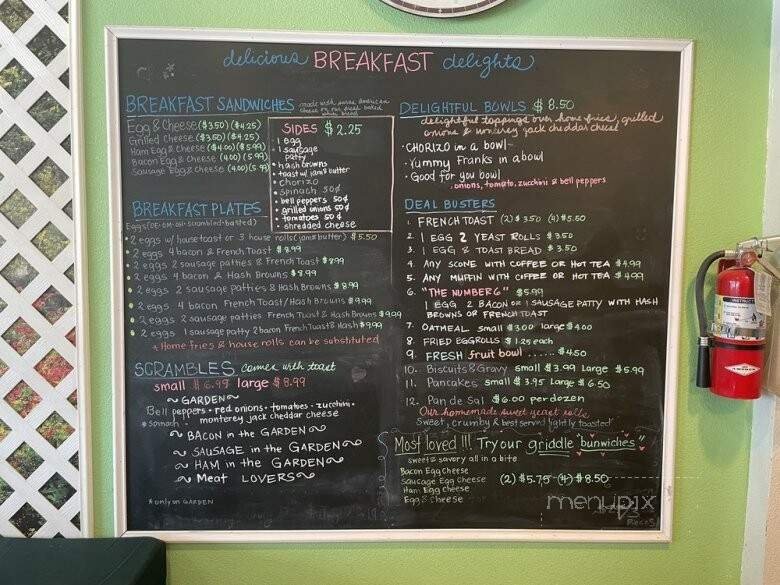 delicious BREAKFAST delights
BREAKFAST SANDWICHES
Egg & Cheese ($3.50) ($4.25)
Grilled Cheese ($3.50) ($4.25)
Ham Egg & Cheese ($4.00) ($5.99)
Bacon Egg & Cheese (4.00) (5.99)
Sausage Egg & Cheese (4.00) (5.99)
SIDES $2.25
• 1 egg
• 1 sausage
patty
• hash browns
• toast w/ jam & butter
• chorizo
• spinach 50¢
• bell peppers 50¢
• grilled onions 50¢
• tomatoes 50¢
• shredded cheese
BREAKFAST PLATES
• 2 eggs w/ house toast or 3 house rolls (jam & butter) $5.50
• 2 eggs 4 bacon & French Toast $8.99
• 2 eggs 2 sausage patties & French Toast $8.99
• 2 eggs 4 bacon & Hash Browns $8.99
• 2 eggs 2 sausage patties & Hash Browns $8.99
• 2 eggs 4 bacon French Toast/Hash Browns $9.99
• 2 eggs 2 sausage patties French Toast & Hash Browns $9.99
• 2 eggs 1 sausage patty 2 bacon French Toast & Hash $9.99
+ Home fries & house rolls can be substituted
SCRAMBLES comes with toast
small $6.99 large $8.99
~ GARDEN ~
Bell peppers • red onions • tomatoes • zucchini •
*spinach • monterey jack cheddar cheese
~ BACON in the GARDEN ~
~ SAUSAGE in the GARDEN ~
~ HAM in the GARDEN ~
~ Meat LOVERS ~
* only on GARDEN
DELIGHTFUL BOWLS $8.50
delightful toppings our home fries, grilled
onions & monterey jack cheddar cheese
• CHORIZO in a bowl
• Yummy Franks in a bowl
• Good for you bowl
onions, tomato, zucchini & bell peppers
DEAL BUSTERS
1. FRENCH TOAST (2) $3.50 (4) $5.50
2. 1 EGG 2 YEAST ROLLS $3.50
3. 1 EGG & TOAST BREAD $3.50
4. ANY SCONE WITH COFFEE OR HOT TEA $4.99
5. ANY MUFFIN WITH COFFEE OR HOT TEA $4.99
6. "THE NUMBER 6" $5.99
1 EGG 2 BACON OR 1 SAUSAGE PATTY WITH HASH
BROWNS OR FRENCH TOAST
7. OATMEAL small $3.00 large $4.00
8. FRIED EGGROLLS $1.25 each
9. FRESH fruit bowl ...... $4.50
10. Biscuits & Gravy small $3.99 Large $5.99
11. Pancakes small $3.95 Large $6.50
12. Pan de Sal $6.00 per dozen
Our homemade sweet yeast rolls
Sweet, crumby & best served lightly toasted
Most loved !!! Try our griddle "bunwiches"
sweet & savory all in a bite
Bacon Egg Cheese
Sausage Egg Cheese (2) $5.75 (4) $8.50
Ham Egg Cheese
Egg & Cheese
menupix